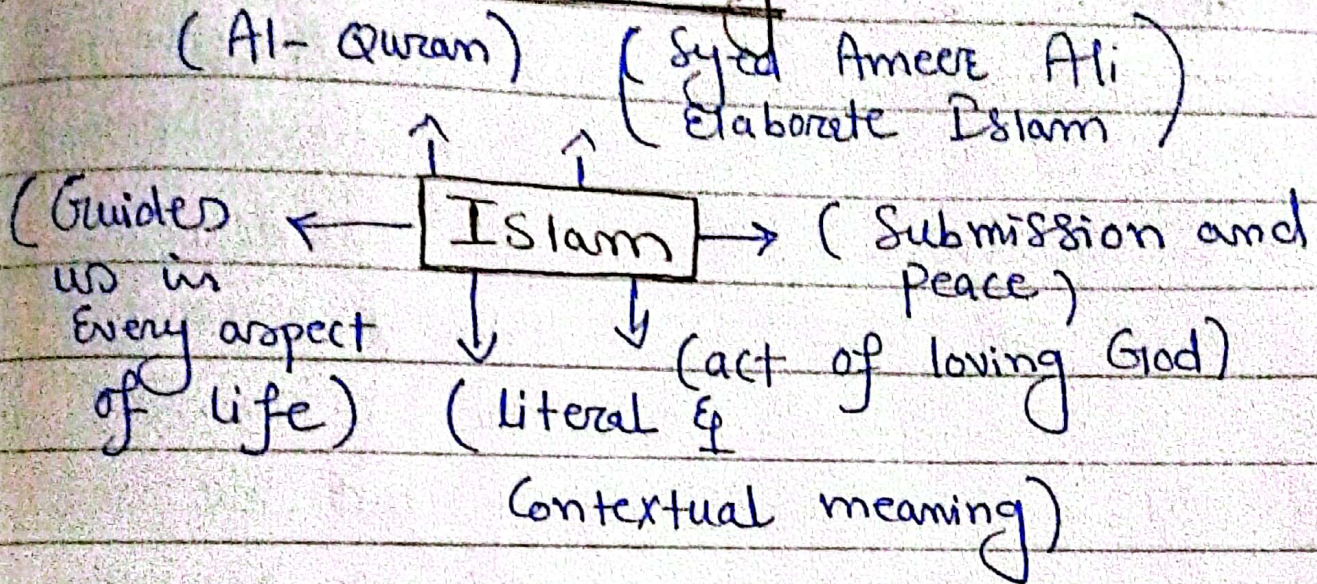 (Al-Quran) (Syed Ameer Ali
Elaborete Islam)
(Guides
us in
Every aspect
of life)
Islam
(Submission and
peace)
(act of loving God)
(literal &
Contextual meaning)